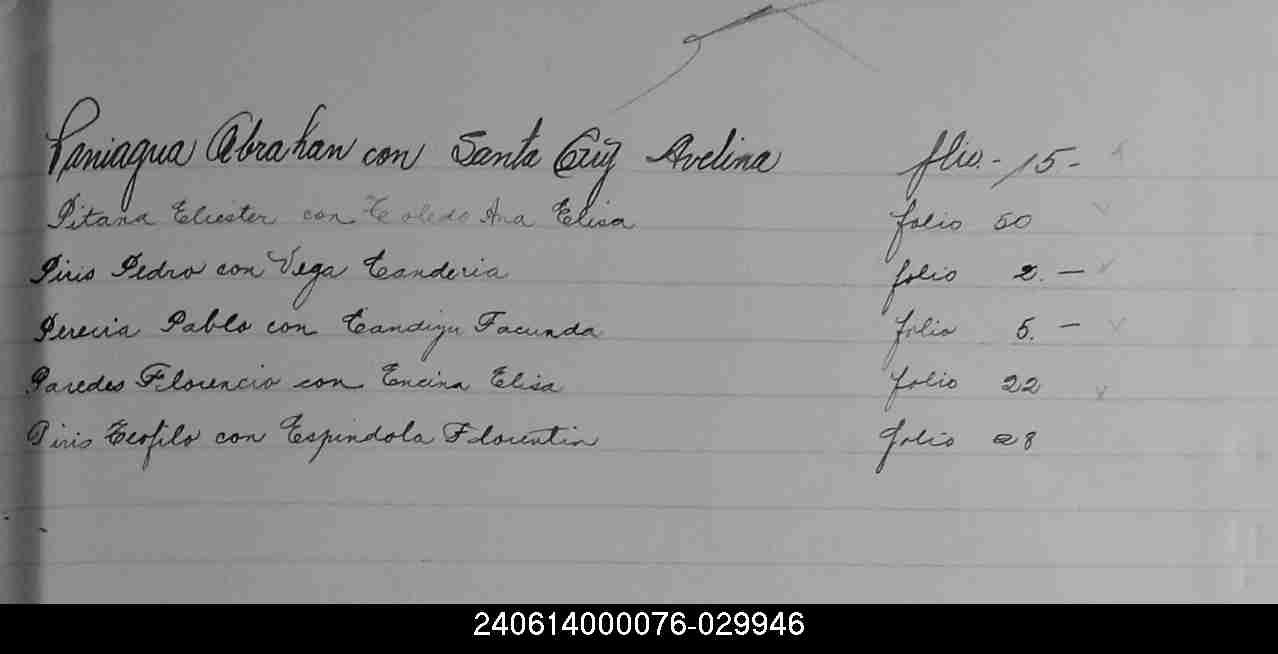 Paniagua Abrahan con Santa Cruz Avelina flio. - 15 -
Pitana Eliester con Toledo Ana Elisa folio 50
Piris Pedro con Vega Canderia folio 2. -
Pereira Pablo con Candizu Facunda folio 5. -
Paredes Florencio con Encina Elisa folio 22
Piris Teofilo con Espindola Florentin folio 28
240614000076-029946